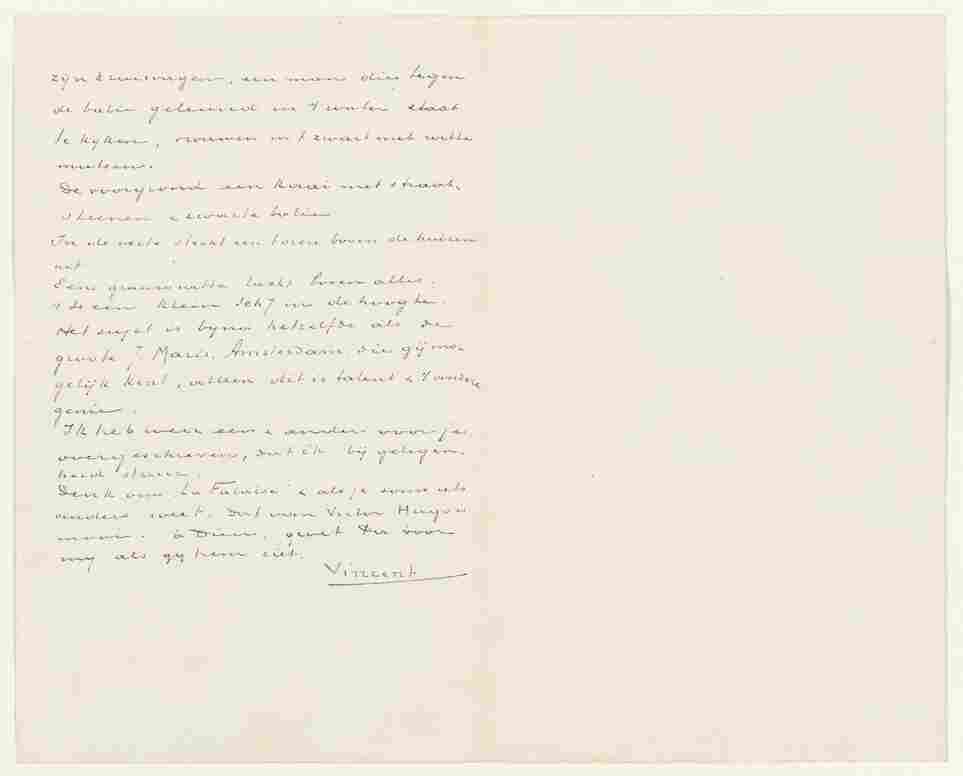 zijn kruiwagen, een man die tegen
de balie geleund in 't water staat
te kijken, vrouwen in 't zwart met witte
mutsen.
De voorgrond een kaai met straat-
steenen & zwarte balie
In de verte steekt een toren boven de huizen
uit
Een graauwwitte lucht boven alles.
't Is een klein schij in de hoogte.
Het sujet is bijna hetzelfde als de
groote J. Maris, Amsterdam die gij mo-
gelijk kent, alleen dit is talent & 't andere
genie.
Ik heb weer een & ander voor je
overgeschreven, dat ik bij gelegen-
heid stuur.
Denk om La Falaise & als je soms iets
anders weet. Dat van Victor Hugo is
mooi. à Dieu, groet Der voor
mij als gij hem ziet.
Vincent